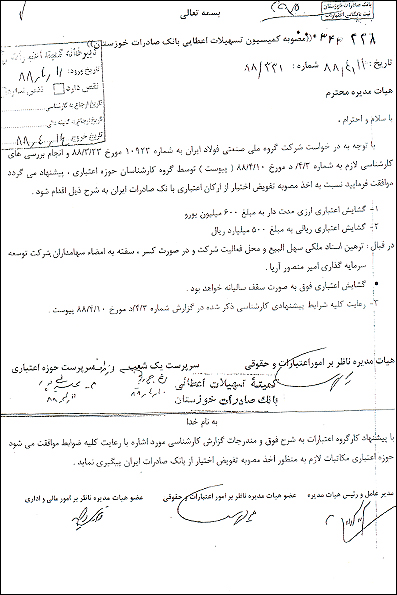 بسمه تعالی
بانک صادرات خوزستان
۳۴۴۲۲۸ ((مصوبه کمیسیون تسهیلات اعطایی بانک صادرات خوزستان))
تاریخ: ۸۸/۴/۱۱ شماره: ۸۸/۳۲۱
تاریخ ورود:
نقص دارد
تاریخ ارجاع به کارشناسی
تاریخ خروج
هیات مدیره محترم
با سلام و احترام ،
با توجه به در خواست شرکت گروه ملی صنعتی فولاد ایران به شماره ۱۰۹۲۳ مورخ ۸۸/۳/۲۳ و انجام بررسی های
کارشناسی لازم به شماره ۴/۳/ د مورخ ۸۸/۴/۱۰ ( پیوست ) توسط گروه کارشناسان حوزه اعتباری ، پیشنهاد می گردد
موافقت فرمایید نسبت به اخذ مصوبه تفویض اختیار از ارکان اعتباری با نک صادرات ایران به شرح ذیل اقدام شود .
۱- گشایش اعتباری ارزی مدت دار به مبلغ ۶۰۰ میلیون یورو
۲- گشایش اعتباری ریالی به مبلغ ۵۰۰ میلیارد ریال
در قبال : ترهین اسناد ملکی سهل البیع و محل فعالیت شرکت و در صورت کسر ، سفته به امضاء سهامداران شرکت توسعه
سرمایه گذاری امیر منصور آریا .
• گشایش اعتباری فوق به صورت سقف سالیانه خواهد بود .
۳- رعایت کلیه شرایط پیشنهادی کارشناسی ذکر شده در گزارش شماره ۴/۳/د مورخ ۸۸/۴/۱۰ پیوست .
هیات مدیره ناظر بر امور اعتبارات و حقوقی سرپرست یک شعب سرپرست حوزه اعتباری
کمیته تسهیلات اعطائی
بانک صادرات خوزستان
به نام خدا
با پیشنهاد کارگروه اعتبارات به شرح فوق و مندرجات گزارش کارشناسی مورد اشاره با رعایت کلیه ضوابط موافقت می شود
حوزه اعتباری مکاتبات لازم به منظور اخذ مصوبه تفویض اختیار از بانک صادرات ایران پیگیری نماید .
مدیر عامل و رئیس هیات مدیره عضو هیات مدیره ناظر بر امور اعتبارات و حقوقی عضو هیات مدیره ناظر بر امور مالی و اداری